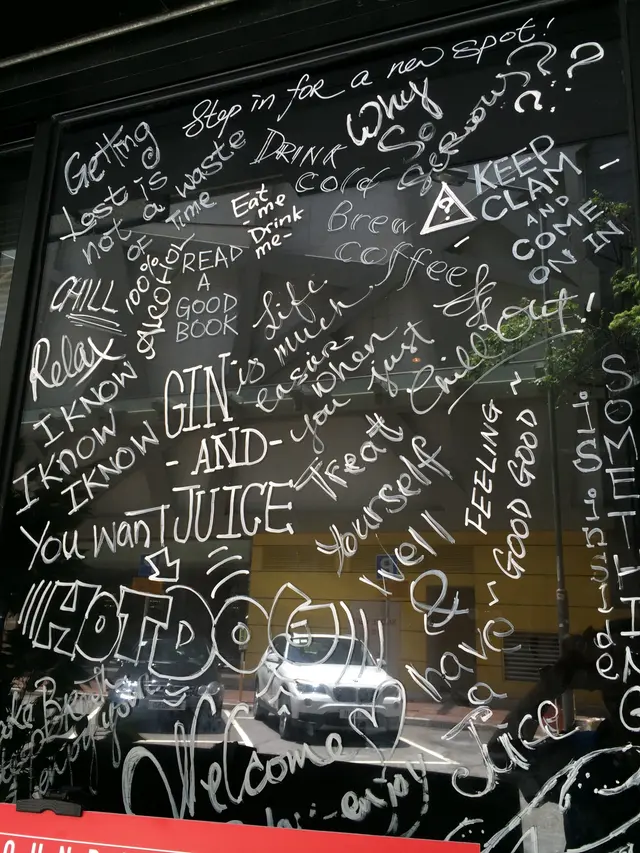 Step in for a new spot!
Getting
Lost is
not a waste
OF Time
DRINK
cold
Brew
coffee
Why
So
serious???
KEEP
CLAM
AND
COME
ON IN
Eat
me
Drink
me-
?
100%
ALCOHOL
READ
A
GOOD
BOOK
CHILL
Relax
Life
is much
easier
when
you just
Chill Out!
I KNOW
I KNOW
I KNOW
GIN
-AND-
JUICE
Treat
yourself
well
&
have
a
Juice
~FEELING~
GOOD GOOD
SOMETHING
is inside
You want
HOTDOG
Welcome
enjoy